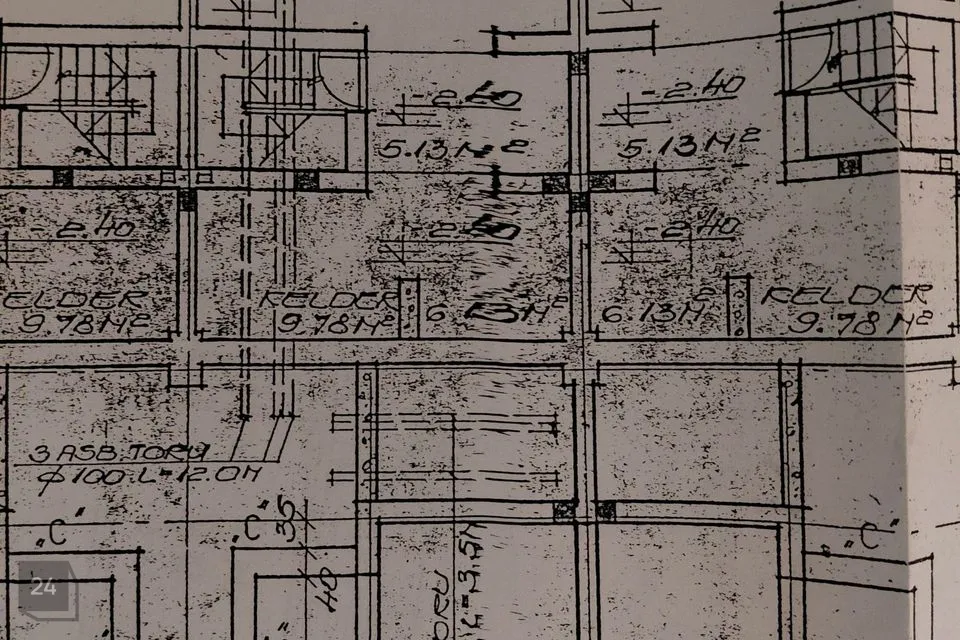 -2.40
-2.40
5.13M²
5.13M²
-2.40
-2.40
-2.40
KELDER
9.78M²
KELDER
9.78M²
6.13M²
6.13M²
KELDER
9.78M²
3 ASB.TORU
φ100.L=12.0M
„C"
„C"
35
„C"
40
24